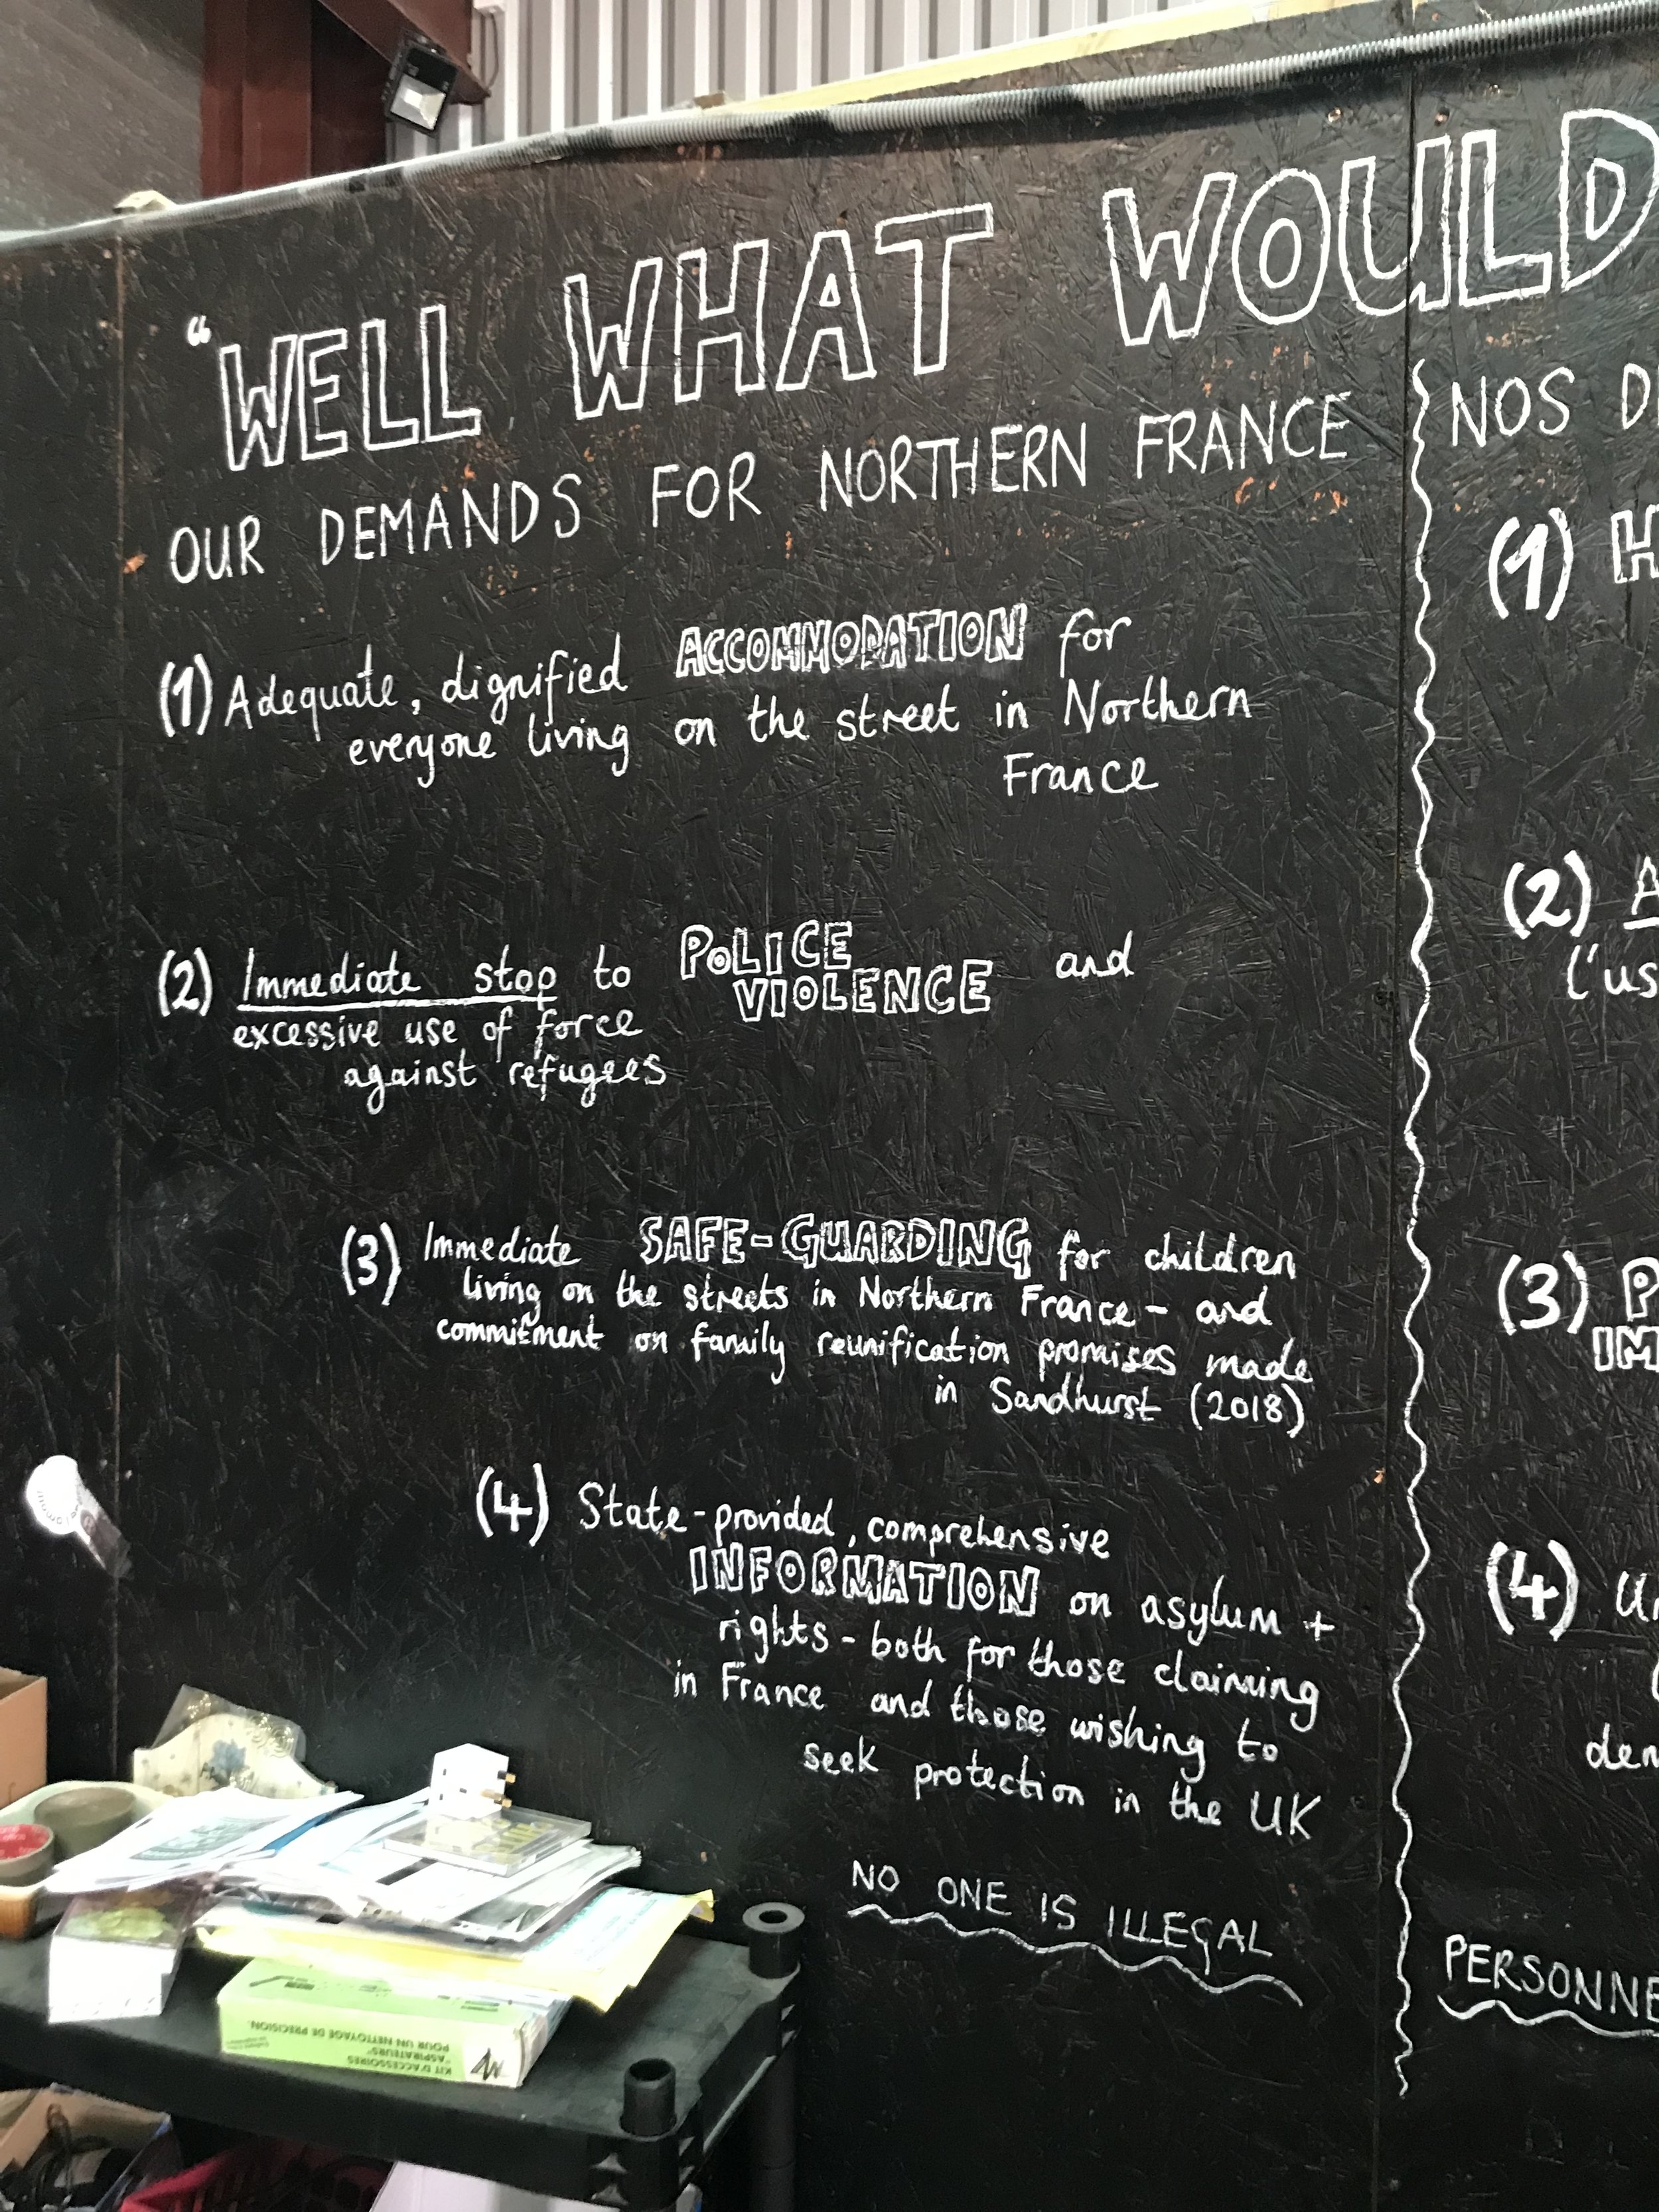 “WELL WHAT WOULD
OUR DEMANDS FOR NORTHERN FRANCE
(1) Adequate, dignified ACCOMMODATION for
everyone living on the street in Northern
France
(2) Immediate stop to POLICE
VIOLENCE and
excessive use of force
against refugees
(3) Immediate SAFE-GUARDING for children
living on the streets in Northern France - and
commitment on family reunification promises made
in Sandhurst (2018)
(4) State-provided, comprehensive
INFORMATION on asylum +
rights - both for those claiming
in France and those wishing to
seek protection in the UK
NO ONE IS ILLEGAL
NOS
(1)
(2)
l'us
(3)
(4)
PERSONNE
KIT D'ACCESSOIRES
"ASPIRATEURS"
POUR UN NETTOYAGE DE PRECISION